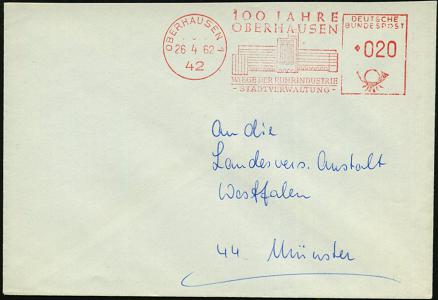 100 JAHRE
OBERHAUSEN
WIEGE DER RUHRINDUSTRIE
- STADTVERWALTUNG -
OBERHAUSEN 1
26.4.62
42
DEUTSCHE
BUNDESPOST
020
An die
Landesvers. Anstalt
Westfalen
44 Münster